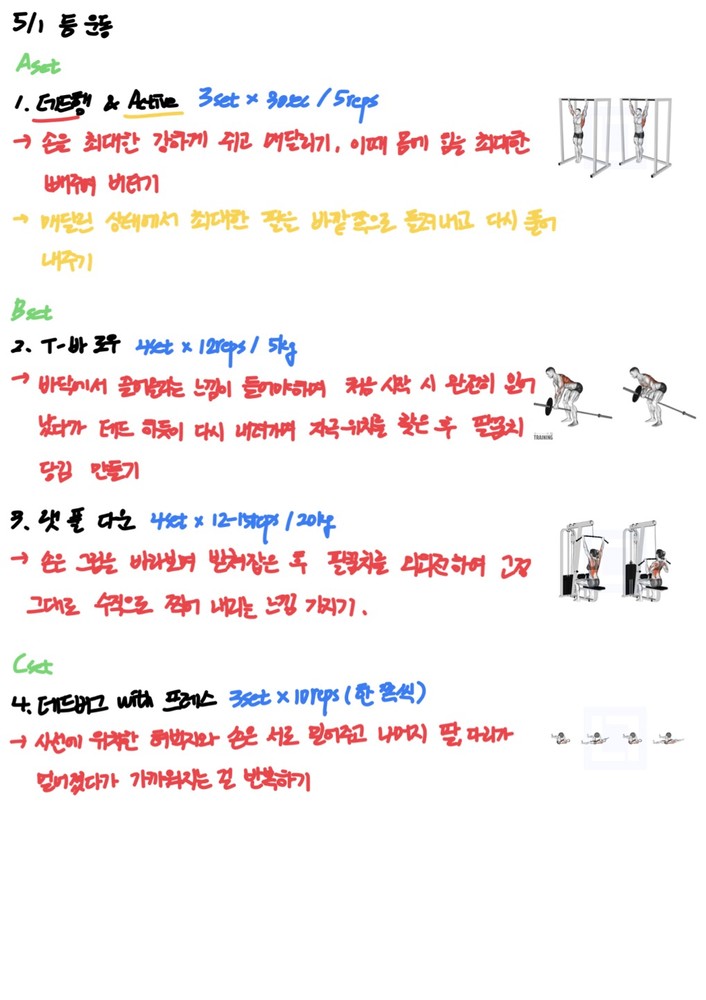 5/1 등 운동
A set
1. 데드행 & Active 3set × 30sec / 5reps
→ 손은 최대한 강하게 쥐고 매달리기, 이때 몸에 힘을 최대한
빼주며 버티기
→ 매달린 상태에서 최대한 팔을 바깥쪽으로 돌려내고 다시 풀어
내주기
B set
2. T-바 로우 4set × 12reps / 5kg
→ 바닥에서 끌어올리는 느낌이 들어야하며 처음 시작 시 완전히 일어
났다가 데드 하듯이 다시 내려가며 자극위치를 찾은 후 팔꿈치
당김 만들기
TRAINING
3. 랫 풀 다운 4set × 12-15reps / 20kg
→ 손은 바라보며 받쳐잡은 후 팔꿈치를 외회전하여 고정
그대로 수직으로 찍어 내리는 느낌 가지기.
C set
4. 데드버그 with 프레스 3set × 10reps (한 쪽씩)
→ 사선에 위치한 허벅지와 손은 서로 밀어주고 나머지 팔, 다리가
멀어졌다가 가까워지는 걸 반복하기